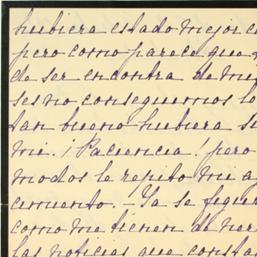 hubiera estado mejor c
pero como parece que
de ser encontra de mi
ses no conseguimos lo
tan bueno hubiera s
mi. ¡Paciencia! pero
modos le repito mi a
cimiento. - Ya se figur
como me tienen de ner
las noticias que consta